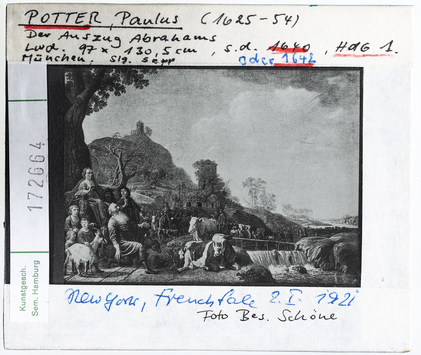 POTTER, Paulus (1625-54)
Der Auszug Abrahams
Lwd. 97 x 130,5 cm, s.d. 1640, HdG 1.
oder 1642
München, Slg. Sepp
172664
Kunstgesch.
Sem. Hamburg
New York, French Sale 2.I. 1921
Foto Bes. Schöne